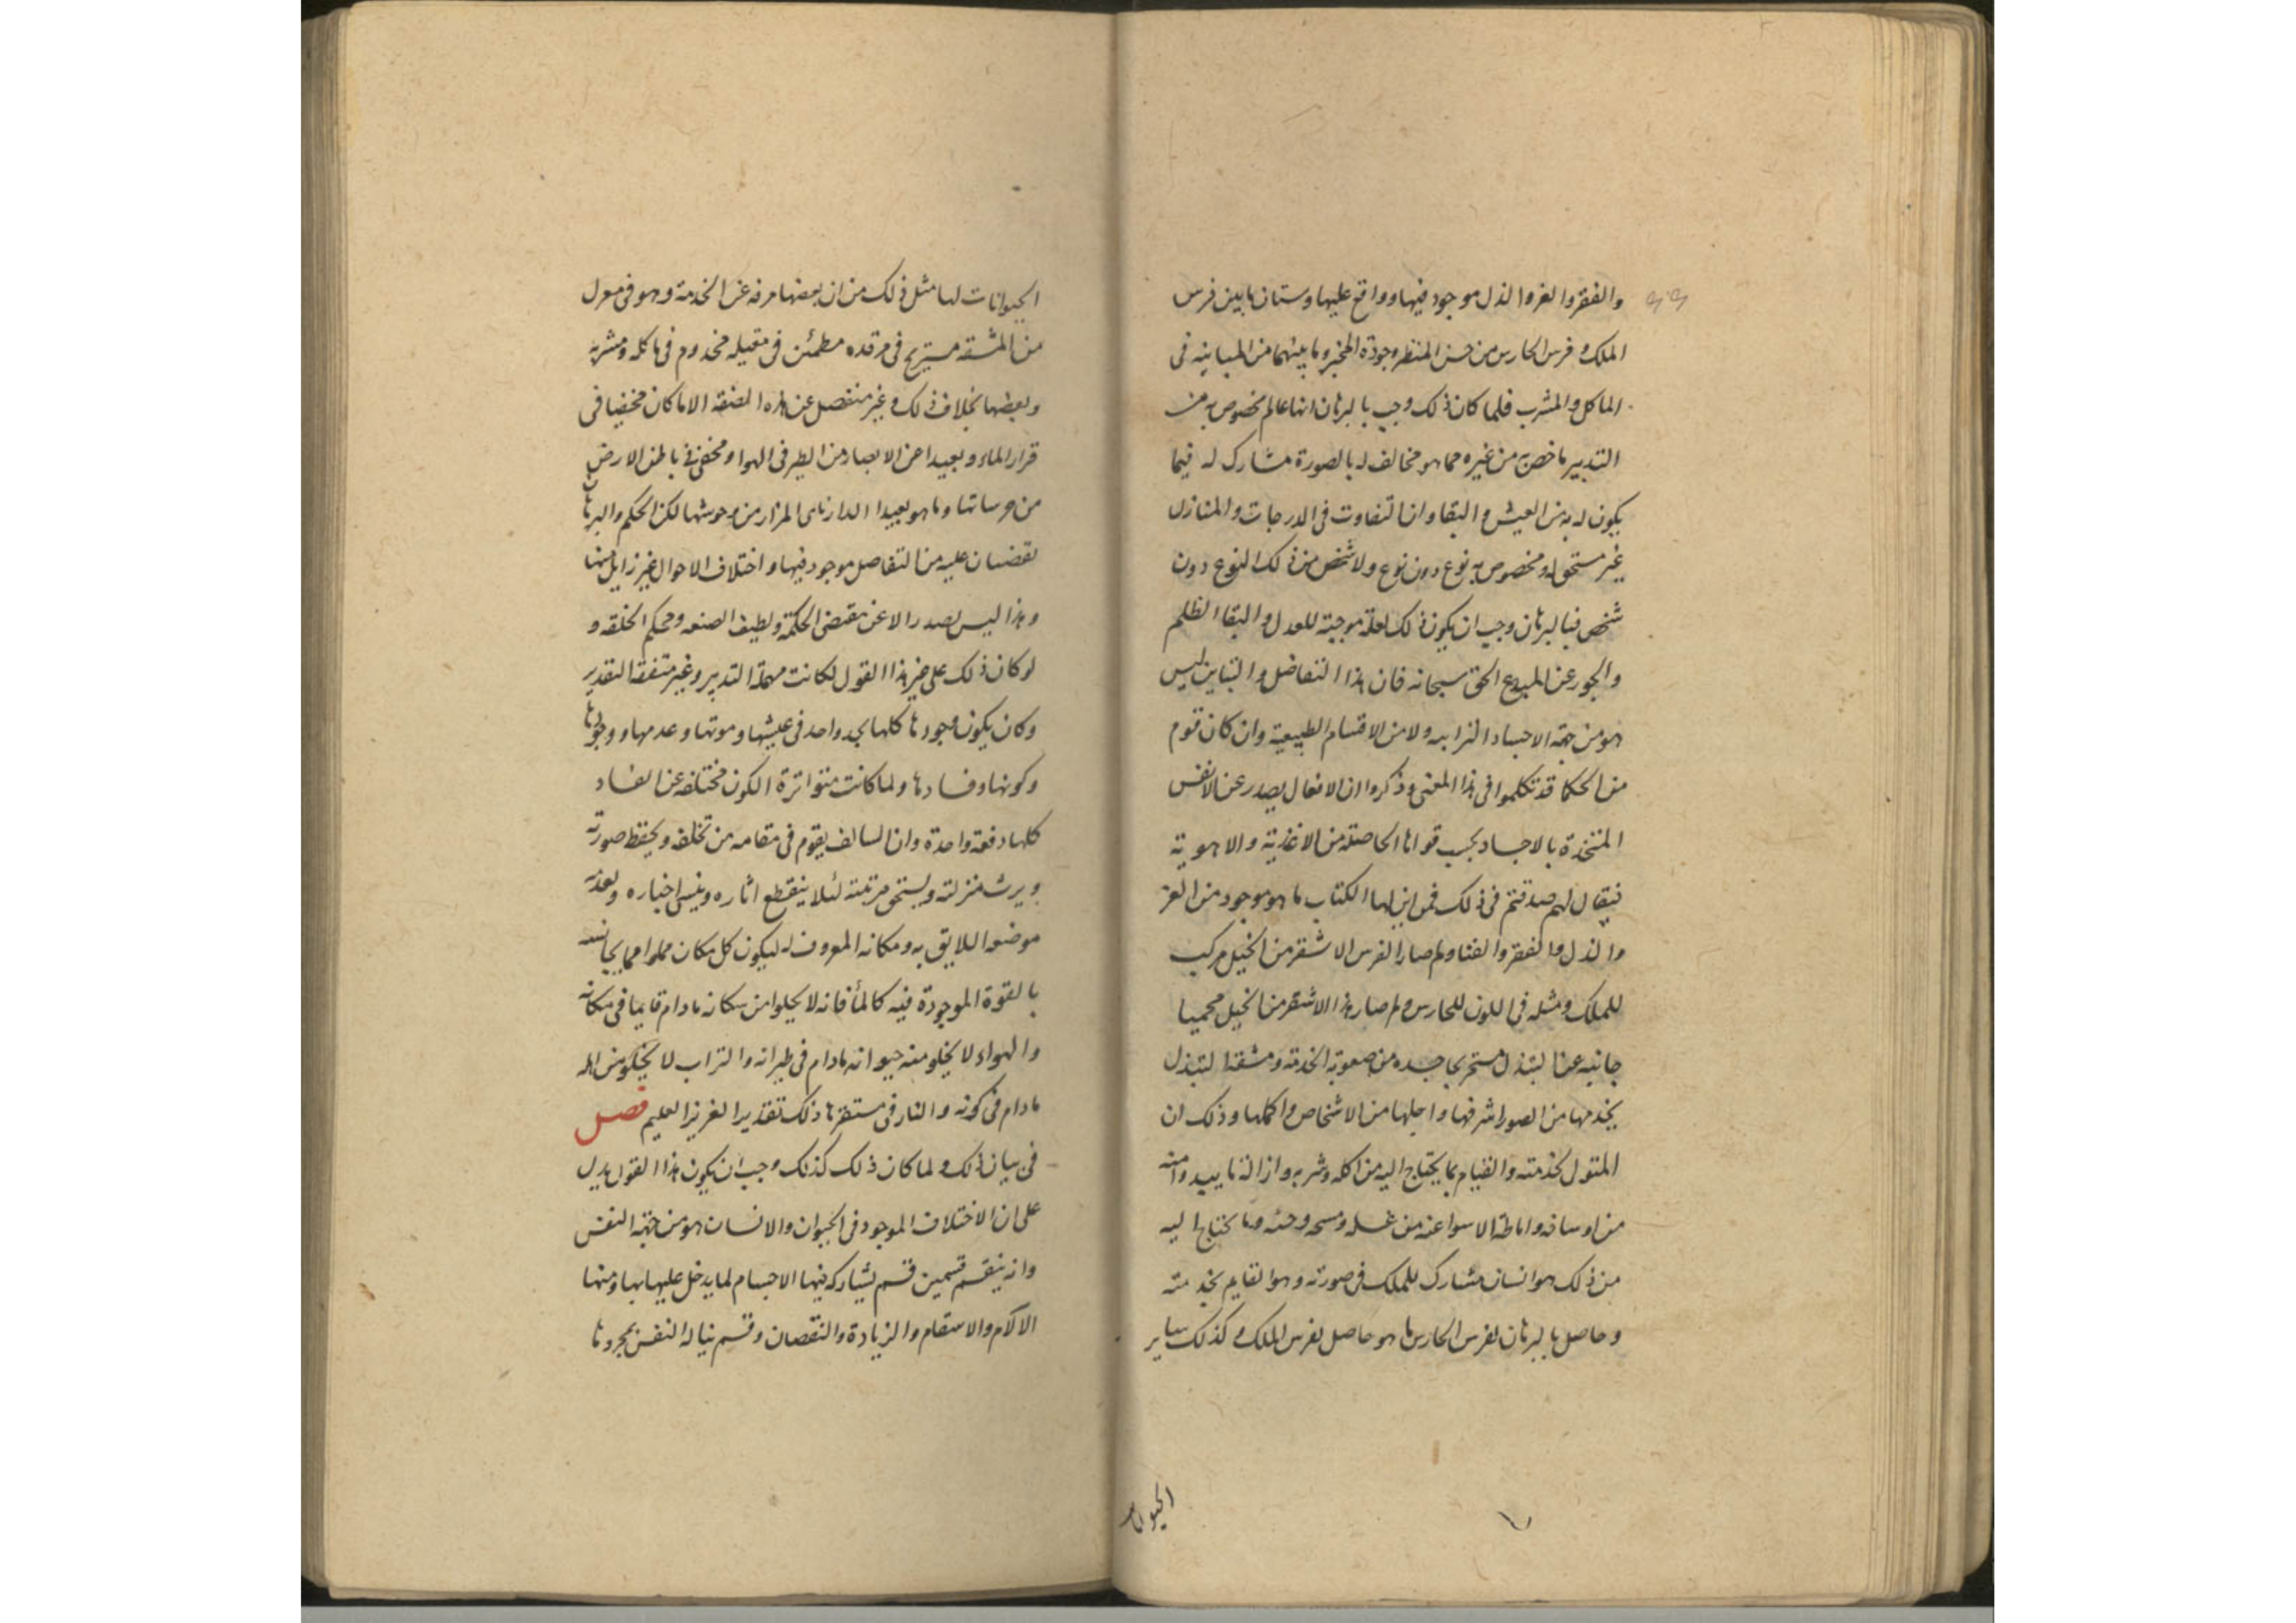 والفقر والعز والذل موجود فيها وواقع عليها وستان ما بين فرس
الملك وفرس الحارس من حسن المنظر وجودة المخبر وما بينهما من المباينه فى
الماكل والمشرب فلما كان ذلك وجب بالبرهان انها عالم مخصوص به من
التدبير ما خص به من غيره مما هو مخالف له بالصورة مشارك له فيما
يكون له به من العيش والبقا وان التفاوت فى الدرجات والمنازل
غير مستحق له ومخصوص به نوع دون نوع ولا شخص من ذلك النوع دون
شخص فبالبرهان وجب ان يكون ذلك لعلة موجبة للعدل والبقا الظلم
والجور عن المبدع الحق سبحانه فان هذا التفاضل والتباين ليس
هو من جهة الاجساد الترابيه ولا من الاقسام الطبيعية وان كان قوم
من الحكما قد تكلموا فى هذا المعنى وذكروا ان الافعال يصدر عن الانفس
المتخذة بالاجساد بحسب قواها الحاصلة من الاغذية والاهوية
فيقال لهم صدقتم فى ذلك فمن اين لها الكتاب ما هو موجود من العز
والذل والفقر والغنا ولم صار الفرس الاشقر من الخيل مركب
للملك ومثله فى اللون للحارس ولم صار هذا الاشقر من الخيل محميا
جانبه عن التبذل مستريحا جسده من صعوبة الخدمة ومشقة التبذل
يخدمها من الصور اشرفها واجلها من الاشخاص واكملها وذلك ان
المتولى لخدمته والقيام بما يحتاج اليه من اكله وشربه وازالة ما يبيد وامنه
من اوساخه واماطة الاسوا عنه من غسله ومسحه وحثه وما يحتاج اليه
من ذلك هو انسان مشارك للملك فى صورته وهو القايم بخدمته
وحاصل بالبرهان لفرس الحارس ما هو حاصل لفرس الملك وكذلك ساير
الحيوانات
الحيوانات لها مثل ذلك من ان بعضها مرفه عن الخدمة وهو فى معزل
من المشقه مستريح فى مرقده مطمئن فى مقيله مخدوم فى ماكله ومشربه
وبعضها بخلاف ذلك وغير منفصل عن هذه الصنفه الا ما كان مخفيا فى
قرار الماء وبعيدا عن الابصار من الطير فى الهوا ومخفى فى باطن الارض
من حرساتها وما هو بعيدا الدار ناى المزار من وحوشها لكن الحكم والبرهان
يقضيان عليه من التفاصل موجود فيها واختلاف الاحوال غير زايل منها
وهذا ليس يصدر الا عن مقتضى الحكمة ولطيف الصنعه ومحكم الخلقه و
لو كان ذلك على غير هذا القول لكانت مهملة التدبير وغير متفقة التقدير
وكان يكون موجودها كلها بحد واحد فى عيشها وموتها وعدمها ووجودها
وكونها وفسادها ولما كانت متواترة الكون مختلفه عن الفساد
كلها دفعة واحدة وان السالف يقوم فى مقامه من تخلفه ويحفظ صورته
ويرث منزلته ويستحق مرتبته لئلا ينقطع اثاره وينسى اخباره وبعده
موضعه اللايق به ومكانه المعروف له ليكون كل مكان مملوا مما يجانسه
بالقوة الموجودة فيه كالمأ فانه لا يخلوا من سكانه ما دام قايما فى مكانه
والهواء لا يخلو منه حيوانه ما دام فى طيرانه والتراب لا يخلو من اهله
ما دام فى كونه والنار فى مستقرها ذلك تقدير العزيز العليم فصل
فى بيان ذلك ولما كان ذلك كذلك وجب ان يكون هذا القول يدل
على ان الاختلاف الموجود فى الحيوان والانسان هو من جهة النفس
وانه ينقسم قسمين قسم يشاركه فيها الاجسام لما يدخل عليها بها ومنها
الالام والاسقام والزيادة والنقصان وقسم يناله النفس بمجردها